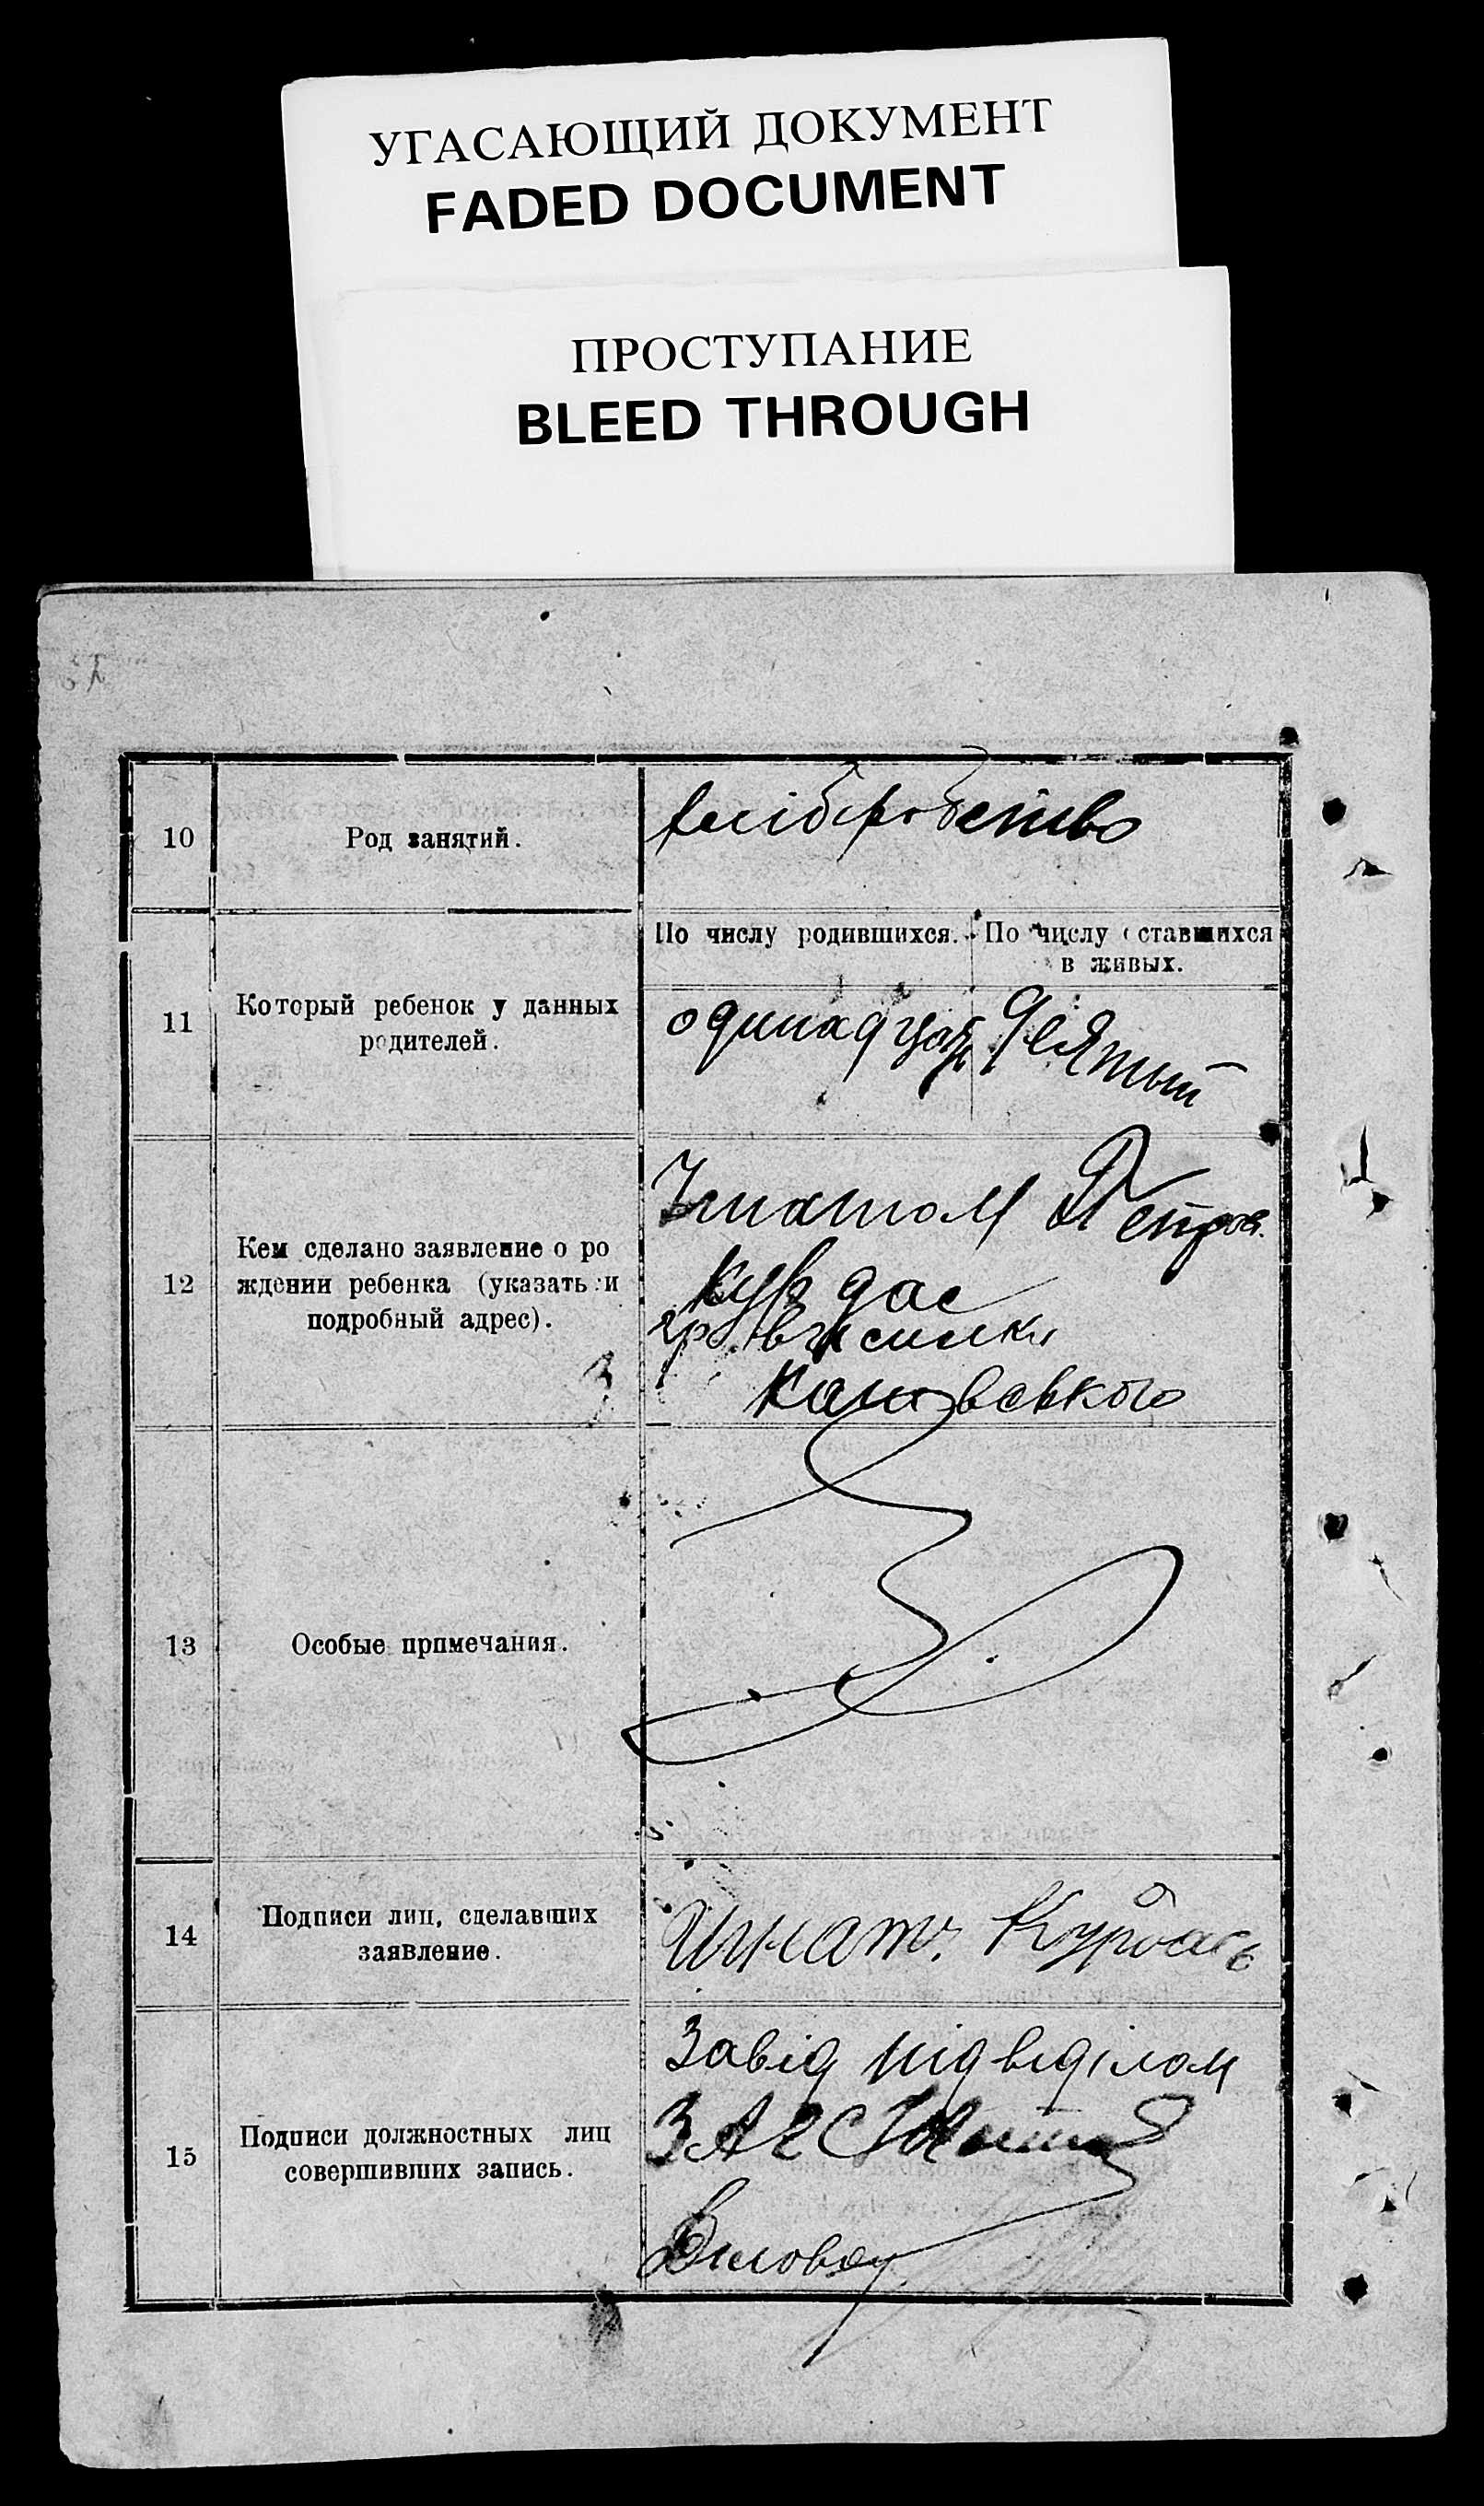 УГАСАЮЩИЙ ДОКУМЕНТ
FADED DOCUMENT
ПРОСТУПАНИЕ
BLEED THROUGH
10
Род занятий.
хлібробство
11
Который ребенок у данных
родителей.
По числу родившихся.
По числу оставшихся
в живых.
одинадцать
девятый
12
Кем сделано заявление о ро
ждении ребенка (указать и
подробный адрес).
Гнатом Петров.
Курдас
гр.
13
Особые примечания.
14
Подписи лиц, сделавших
заявление.
Игнат Курдась
15
Подписи должностных лиц
совершивших запись.
Завід підвідділом
ЗАГС